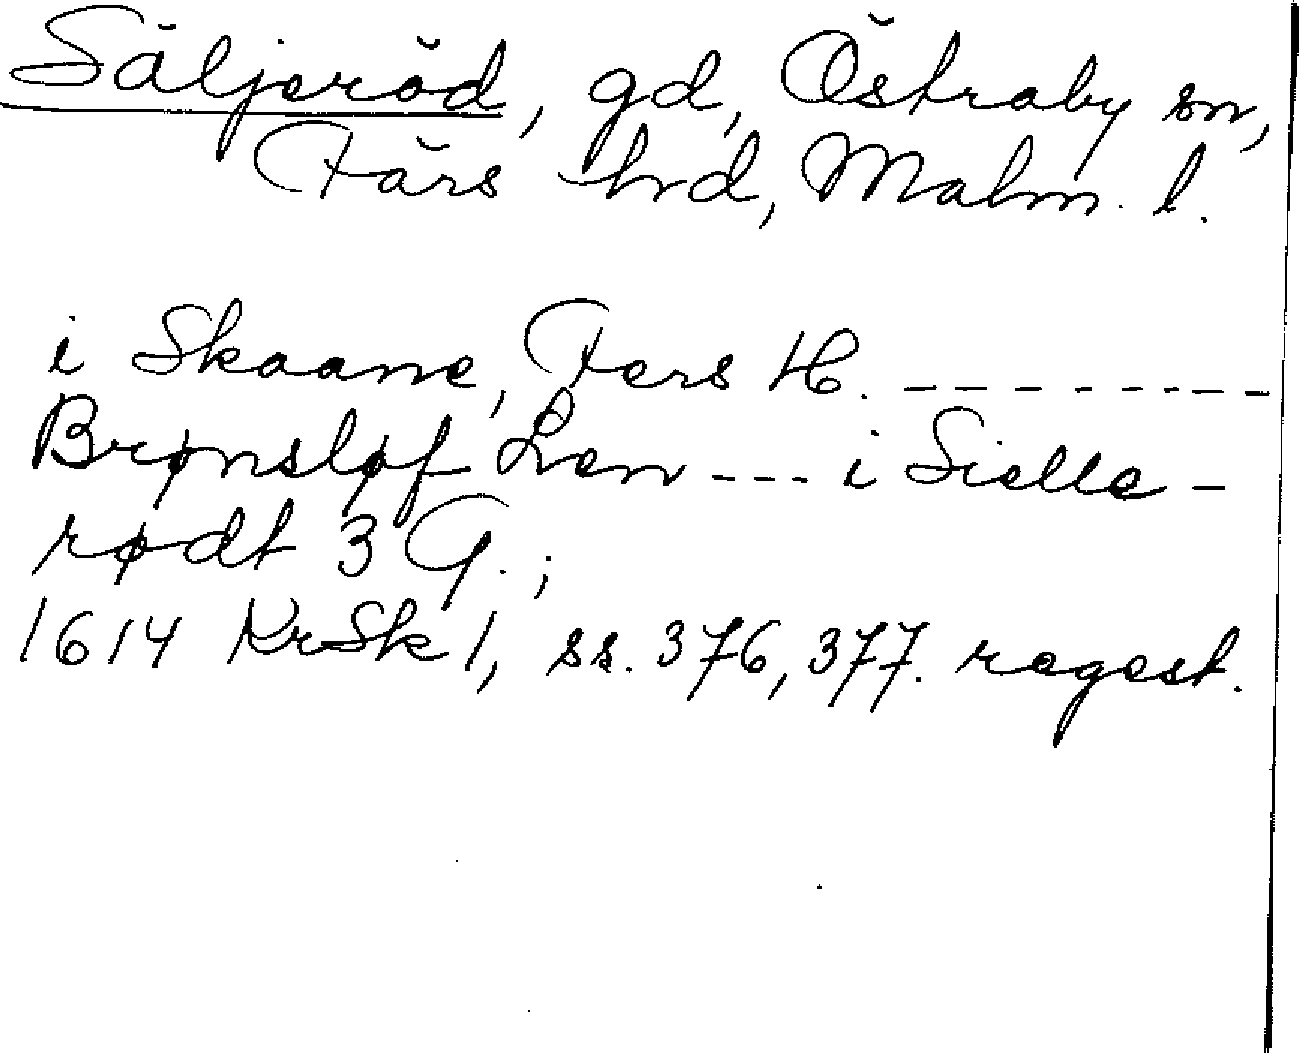 Säljeröd, gd, Östraby sn,
Färs hrd, Malm. l.
i Skaane, Fers H. --------
Brønsløf Len --- i Sielle-
rødt 3 G.;
1614 KrSk 1, ss. 376, 377. regest.